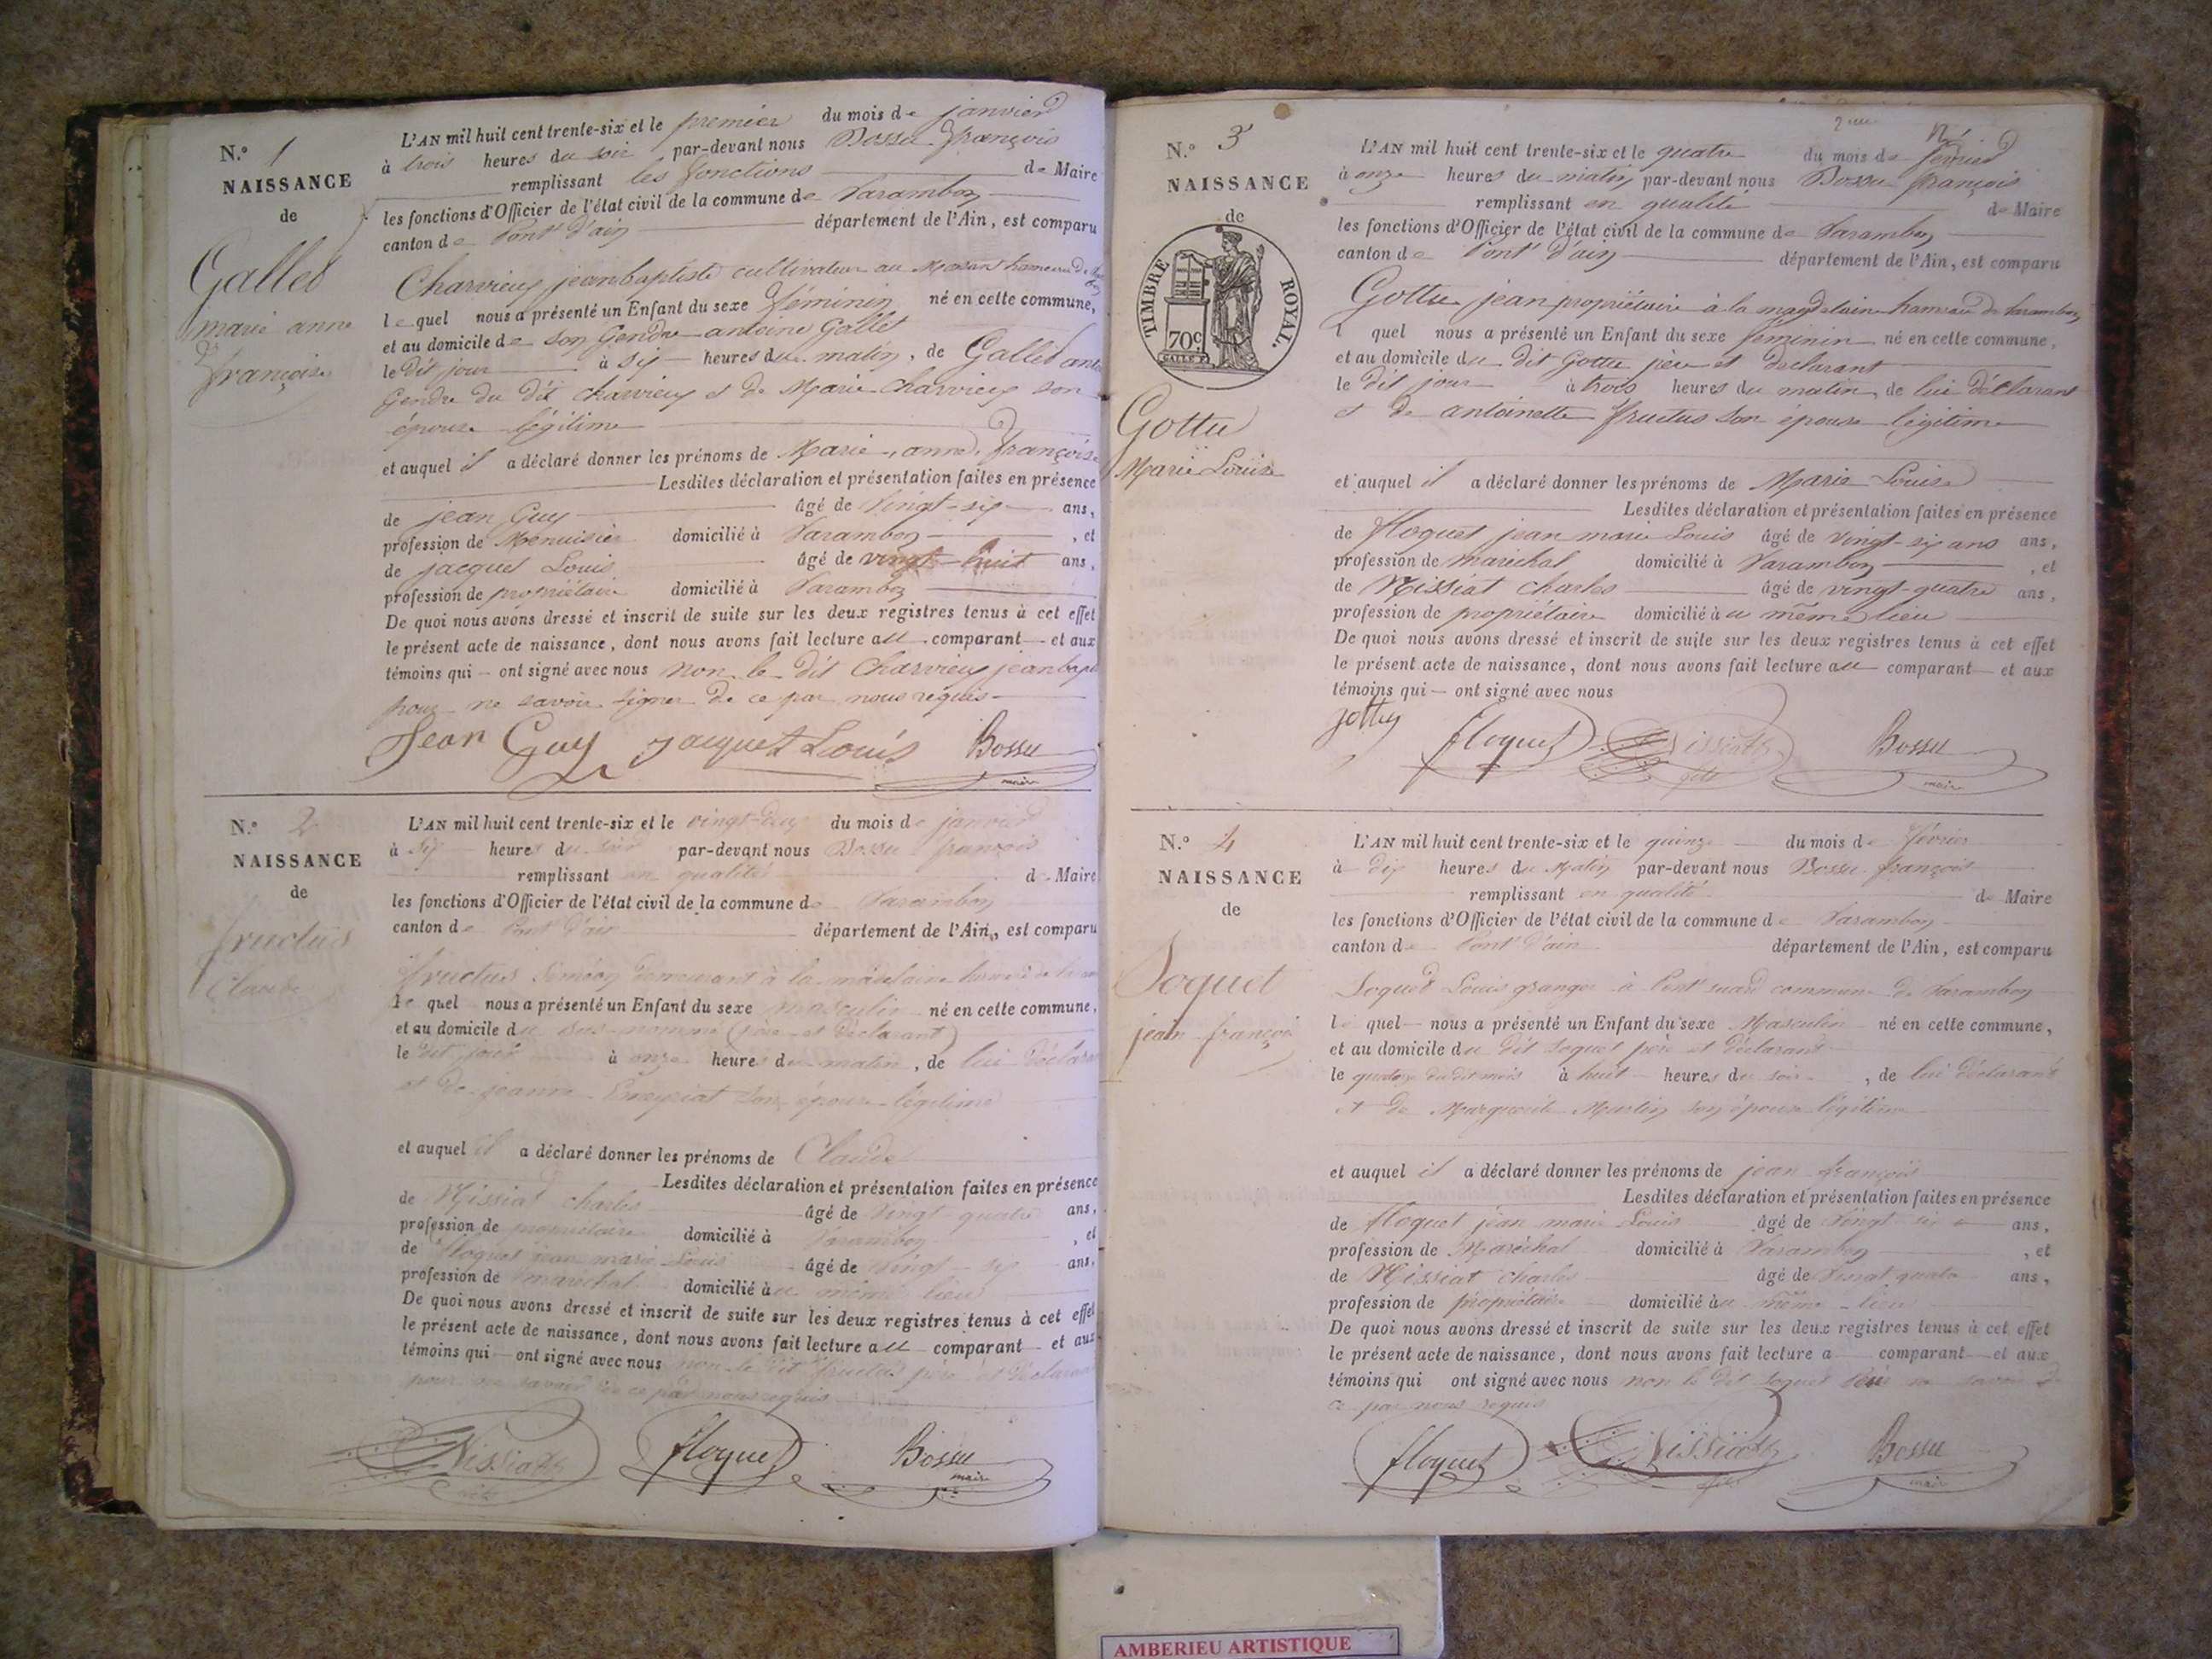 N.° 1
NAISSANCE
de
Gallet
marie anne
françoise
L'AN mil huit cent trente-six et le premier du mois de janvier
à trois heures du soir par-devant nous Bossu françois
remplissant les fonctions de Maire
les fonctions d'Officier de l'état civil de la commune de Varambon
canton de Pont d'ain département de l'Ain, est comparu
Charvieux jeanbaptiste cultivateur au hameau de
lequel nous a présenté un Enfant du sexe féminin né en cette commune,
et au domicile de son Gendre antoine Gallet
le dit jour à six heures du matin, de Gallet
Gendre du dit Charvieux et de Marie Charvieux son
épouse légitime
et auquel il a déclaré donner les prénoms de Marie, anne, françoise
Lesdites déclaration et présentation faites en présence
de jean Guy âgé de vingt-six ans,
profession de Menuisier domicilié à Varambon, et
de jacquet Louis âgé de vingt-huit ans,
profession de propriétaire domicilié à Varambon
De quoi nous avons dressé et inscrit de suite sur les deux registres tenus à cet effet
le présent acte de naissance, dont nous avons fait lecture au comparant et aux
témoins qui ont signé avec nous non le dit Charvieux jeanbapt
pour ne savoir signer de ce par nous requis
Jean Guy jacquet Louis Bossu
maire
N.° 2
NAISSANCE
de
fructus
Claude
L'AN mil huit cent trente-six et le vingt-deux du mois de janvier
à six heures du soir par-devant nous Bossu françois
remplissant en qualité de Maire
les fonctions d'Officier de l'état civil de la commune de Varambon
canton de Pont d'ain département de l'Ain, est comparu
fructus Siméon demeurant à la madelaine hameau de
le quel nous a présenté un Enfant du sexe masculin né en cette commune,
et au domicile du sus-nommé (père et déclarant)
le dit jour à onze heures du matin, de lui déclarant
et de jeanne son épouse légitime
et auquel il a déclaré donner les prénoms de Claude
Lesdites déclaration et présentation faites en présence
de Nissiat charles âgé de vingt quatre ans,
profession de propriétaire domicilié à Varambon, et
de floquet jean marie Louis âgé de vingt-six ans,
profession de maréchal domicilié au même lieu
De quoi nous avons dressé et inscrit de suite sur les deux registres tenus à cet effet
le présent acte de naissance, dont nous avons fait lecture au comparant et aux
témoins qui ont signé avec nous non le dit fructus père et déclarant
pour ne savoir de ce par nous requis
Nissiat floquet Bossu
maire
2me
N.° 3
NAISSANCE
de
TIMBRE ROYAL.
70c
Gottu
Marie Louise
L'AN mil huit cent trente-six et le quatre du mois de février
à onze heures du matin par-devant nous Bossu françois
remplissant en qualité de Maire
les fonctions d'Officier de l'état civil de la commune de Varambon
canton de Pont d'ain département de l'Ain, est comparu
Gottu jean propriétaire à la magdelaine hameau de Varambon
l quel nous a présenté un Enfant du sexe féminin né en cette commune,
et au domicile du dit Gottu père et déclarant
le dit jour à trois heures du matin, de lui déclarant
et de antoinette fructus son épouse légitime
et auquel il a déclaré donner les prénoms de Marie Louise
Lesdites déclaration et présentation faites en présence
de floquet jean marie Louis âgé de vingt-six ans ans,
profession de maréchal domicilié à Varambon, et
de Nissiat charles âgé de vingt-quatre ans,
profession de propriétaire domicilié au même lieu
De quoi nous avons dressé et inscrit de suite sur les deux registres tenus à cet effet
le présent acte de naissance, dont nous avons fait lecture au comparant et aux
témoins qui ont signé avec nous
floquet Nissiat Bossu
maire
N.° 4
NAISSANCE
de
Soquet
jean françois
L'AN mil huit cent trente-six et le quinze du mois de février
à dix heures du Matin par-devant nous Bossu françois
remplissant en qualité de Maire
les fonctions d'Officier de l'état civil de la commune de Varambon
canton de Pont d'ain département de l'Ain, est comparu
Soquet Louis granger à commune de Varambon
le quel nous a présenté un Enfant du sexe Masculin né en cette commune,
et au domicile du dit Soquet père et déclarant
le quatorze dudit mois à huit heures du soir, de lui déclarant
et de Marguerite Martin son épouse légitime
et auquel il a déclaré donner les prénoms de jean françois
Lesdites déclaration et présentation faites en présence
de floquet jean marie Louis âgé de vingt six ans,
profession de Maréchal domicilié à Varambon, et
de Nissiat charles âgé de vingt quatre ans,
profession de propriétaire domicilié au même lieu
De quoi nous avons dressé et inscrit de suite sur les deux registres tenus à cet effet
le présent acte de naissance, dont nous avons fait lecture a comparant et aux
témoins qui ont signé avec nous non le dit Soquet
ce par nous requis
floquet Nissiat Bossu
maire
AMBERIEU ARTISTIQUE